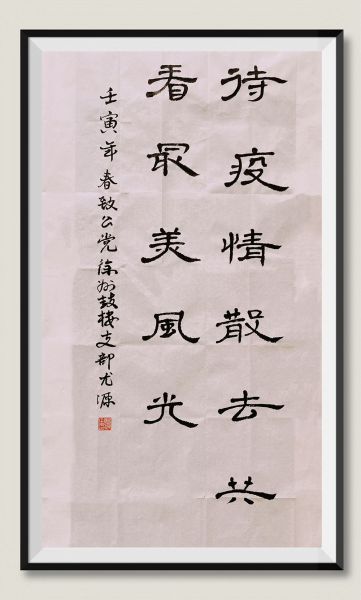 待疫情散去共
看最美風光
壬寅年春致公党徐州鼓楼支部尤源